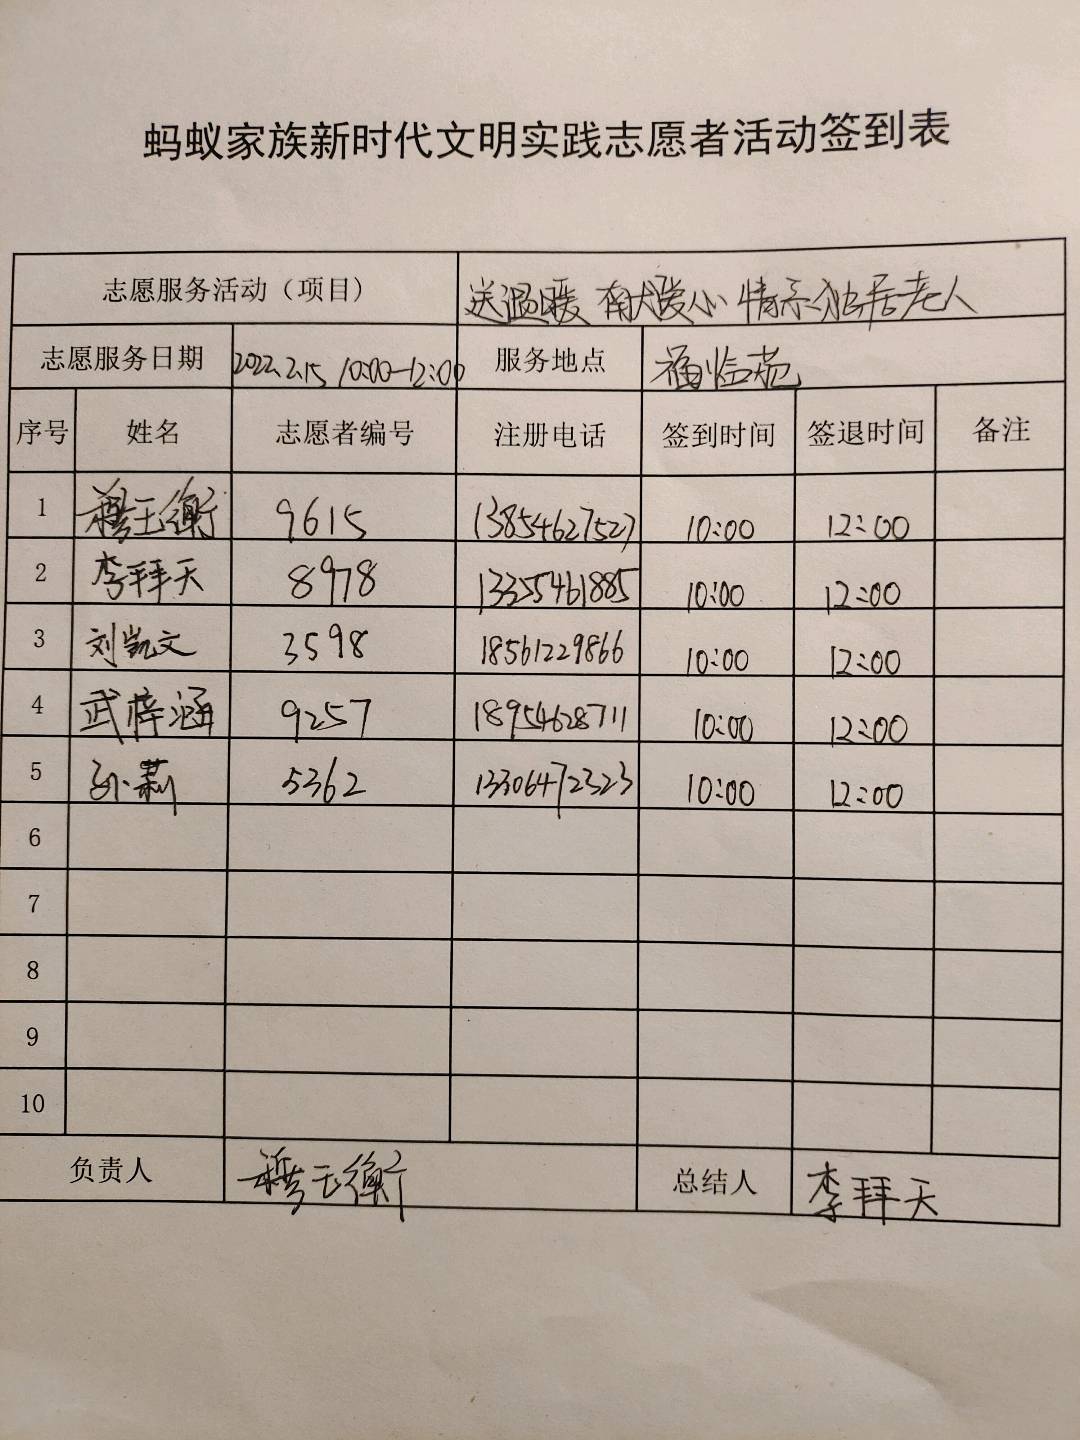 蚂蚁家族新时代文明实践志愿者活动签到表
志愿服务活动（项目） 送温暖 有献爱心 情系独居老人
志愿服务日期 2022.2.15 10:00-12:00 服务地点 福临苑
序号 姓名 志愿者编号 注册电话 签到时间 签退时间 备注
1 穆玉衡 9615 13854627527 10:00 12:00
2 李拜天 8978 13355461885 10:00 12:00
3 刘凯文 3598 18561229866 10:00 12:00
4 武梓涵 9257 18954628711 10:00 12:00
5 孙莉 5362 13306472323 10:00 12:00
6
7
8
9
10
负责人 穆玉衡 总结人 李拜天